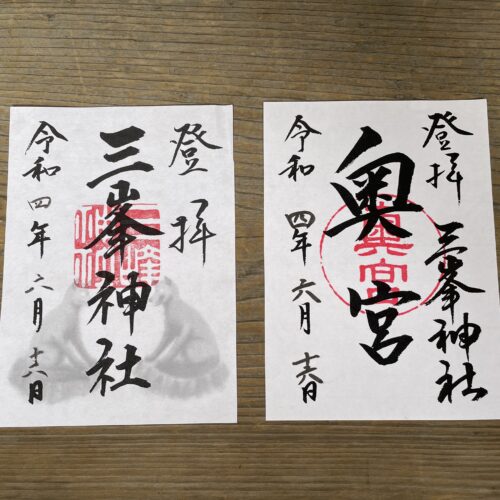 登拝
三峯神社
令和四年六月十六日
登拝
三峯神社
奥宮
奥宮
令和四年六月十六日